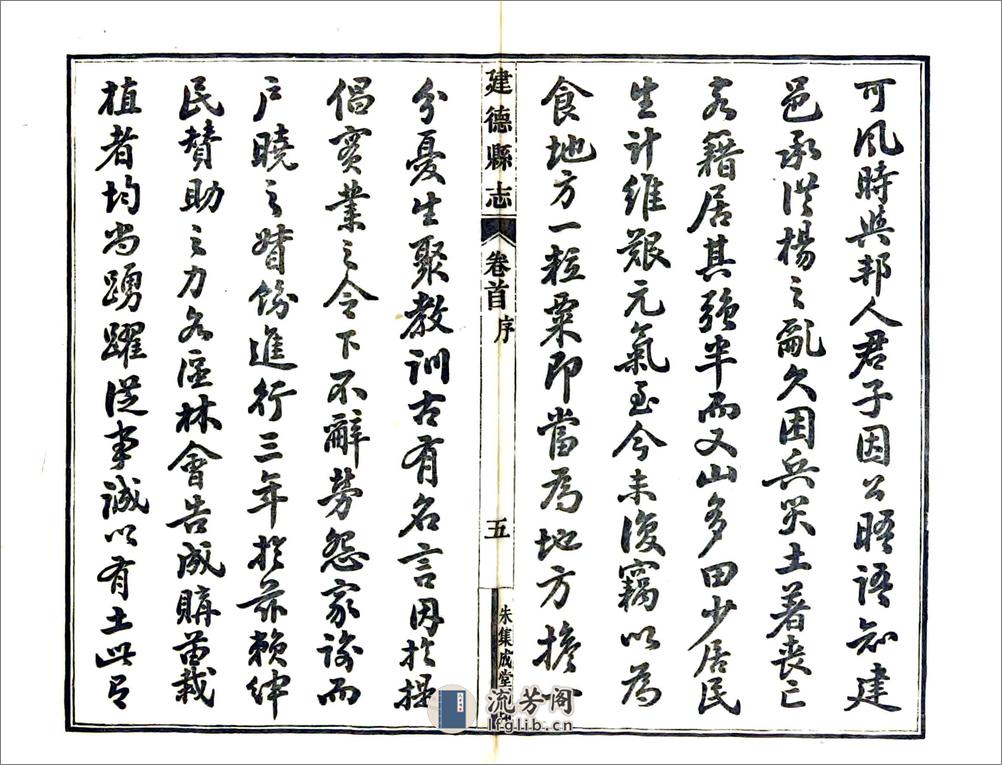 可風時與邦人君子因公晤語知建
邑承洪楊之亂久困兵災土著喪亡
客籍居其强半而又山多田少居民
生計維艱元氣至今未復竊以為
食地方一粒粟即當為地方擔一
建德縣志 卷首 序 五 朱集成堂
分憂生聚教訓古有名言因於提
倡實業之令下不辭勞怨家諭而
戶曉之督飭進行三年於茲賴紳
民贊助之力各區林會告成購苗栽
植者均尚踴躍從事誠以有土此有
流芳阁
lfglib.cn